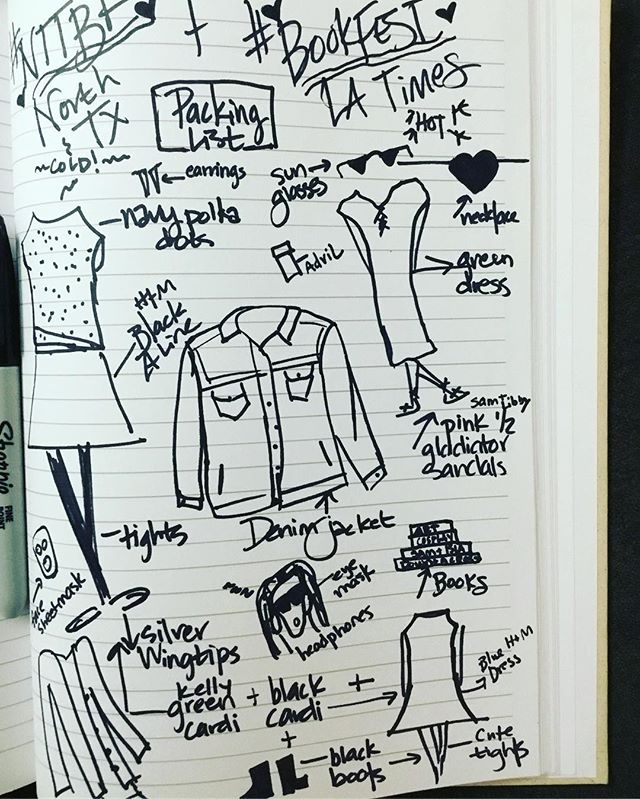 #NTTBF + #BOOKFEST
North TX
LA Times
~COLD!~
Packing List
HOT
earnings
sun glasses
necklace
navy polka dots
Advil
green dress
H+M Black A Line
sam Libby
pink 1/2 gladiator sandals
Sharpie
FINE POINT
tights
Denim jacket
Books
sheet mask
eye mask
headphones
silver Wingtips
kelly green cardi + black cardi +
Blue H+M Dress
+
black boots
Cute tights